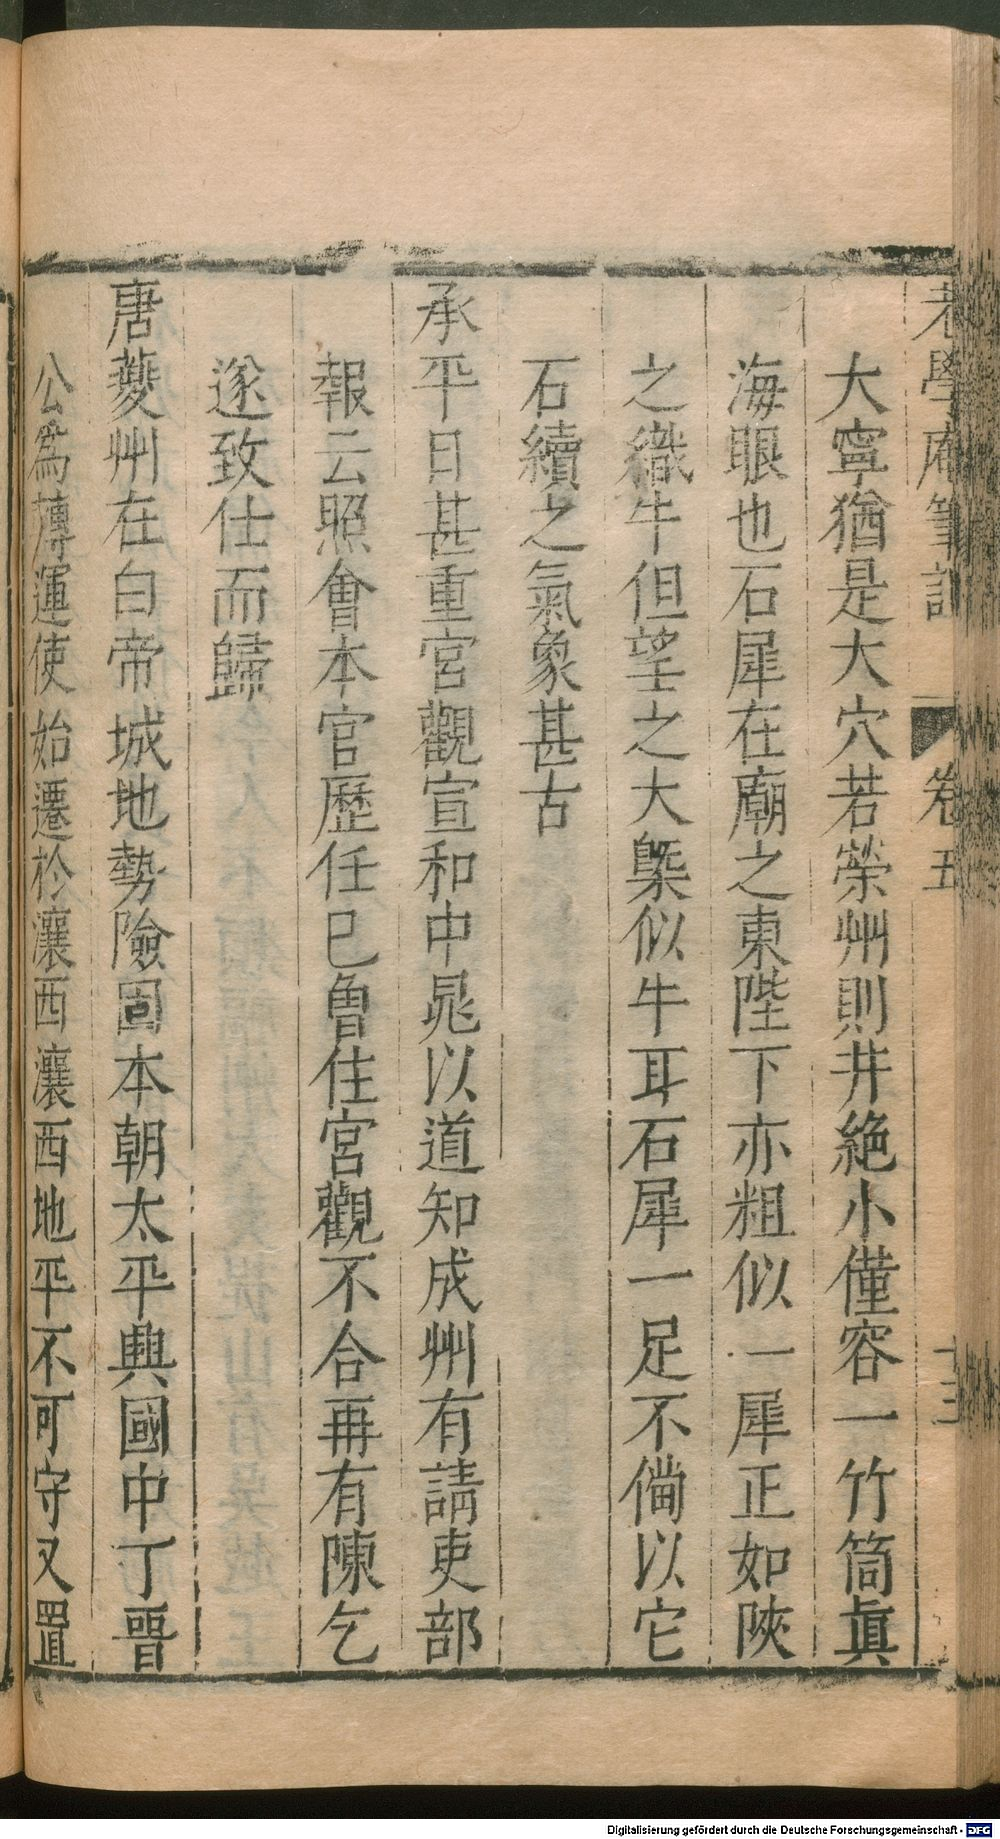 老學庵筆記 卷五 十三
大寧猶是大穴若榮州則井絶小僅容一竹筒眞
海眼也石犀在廟之東陛下亦粗似一犀正如陝
之鐵牛但望之大槩似牛耳石犀一足不備以它
石續之氣象甚古
承平日甚重宮觀宣和中晁以道知成州有請吏部
報云照會本官歷任已曾住宮觀不合再有陳乞
遂致仕而歸
唐夔州在白帝城地勢險固本朝太平興國中丁晉
公爲轉運使始遷於瀼西瀼西地平不可守又置
Digitalisierung gefördert durch die Deutsche Forschungsgemeinschaft - DFG